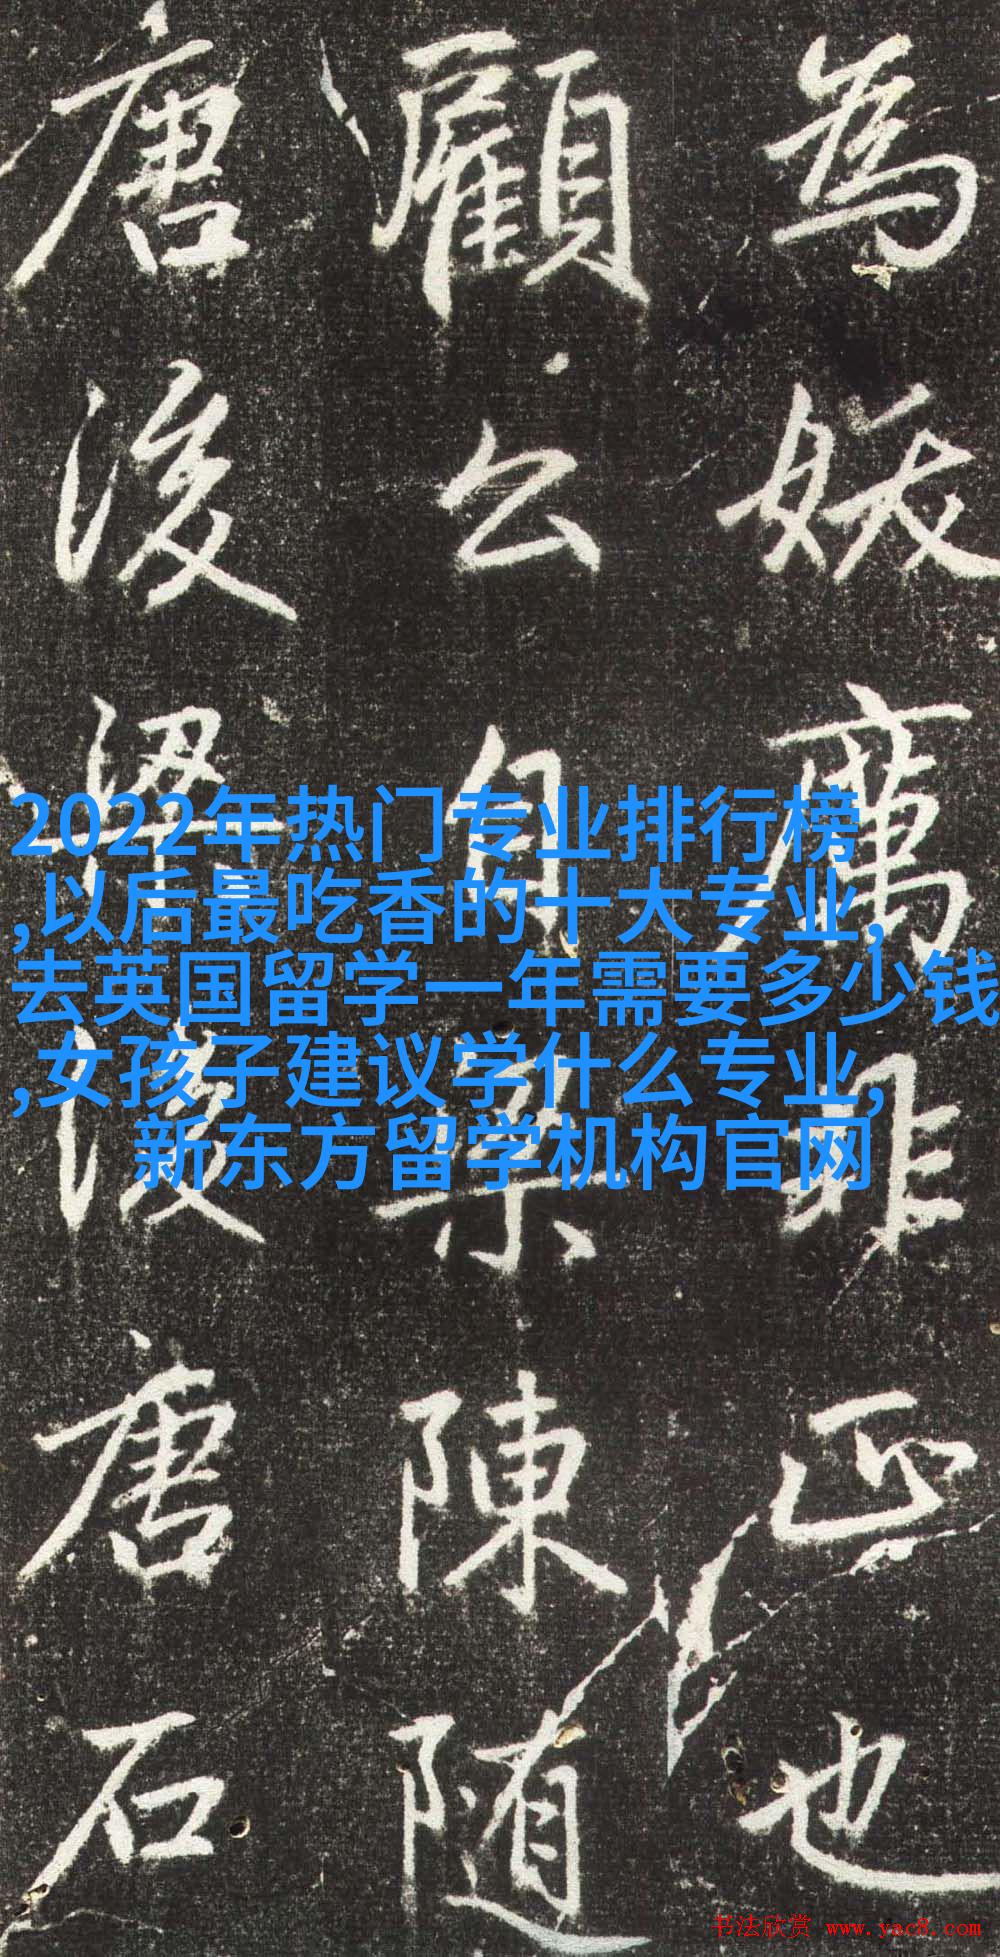 為妖厲非正也
顧公自梁陳随
唐後梁後唐石
2022年热门专业排行榜
,以后最吃香的十大专业,
去英国留学一年需要多少钱
,女孩子建议学什么专业,
新东方留学机构官网
书法欣赏 www.yac8.com